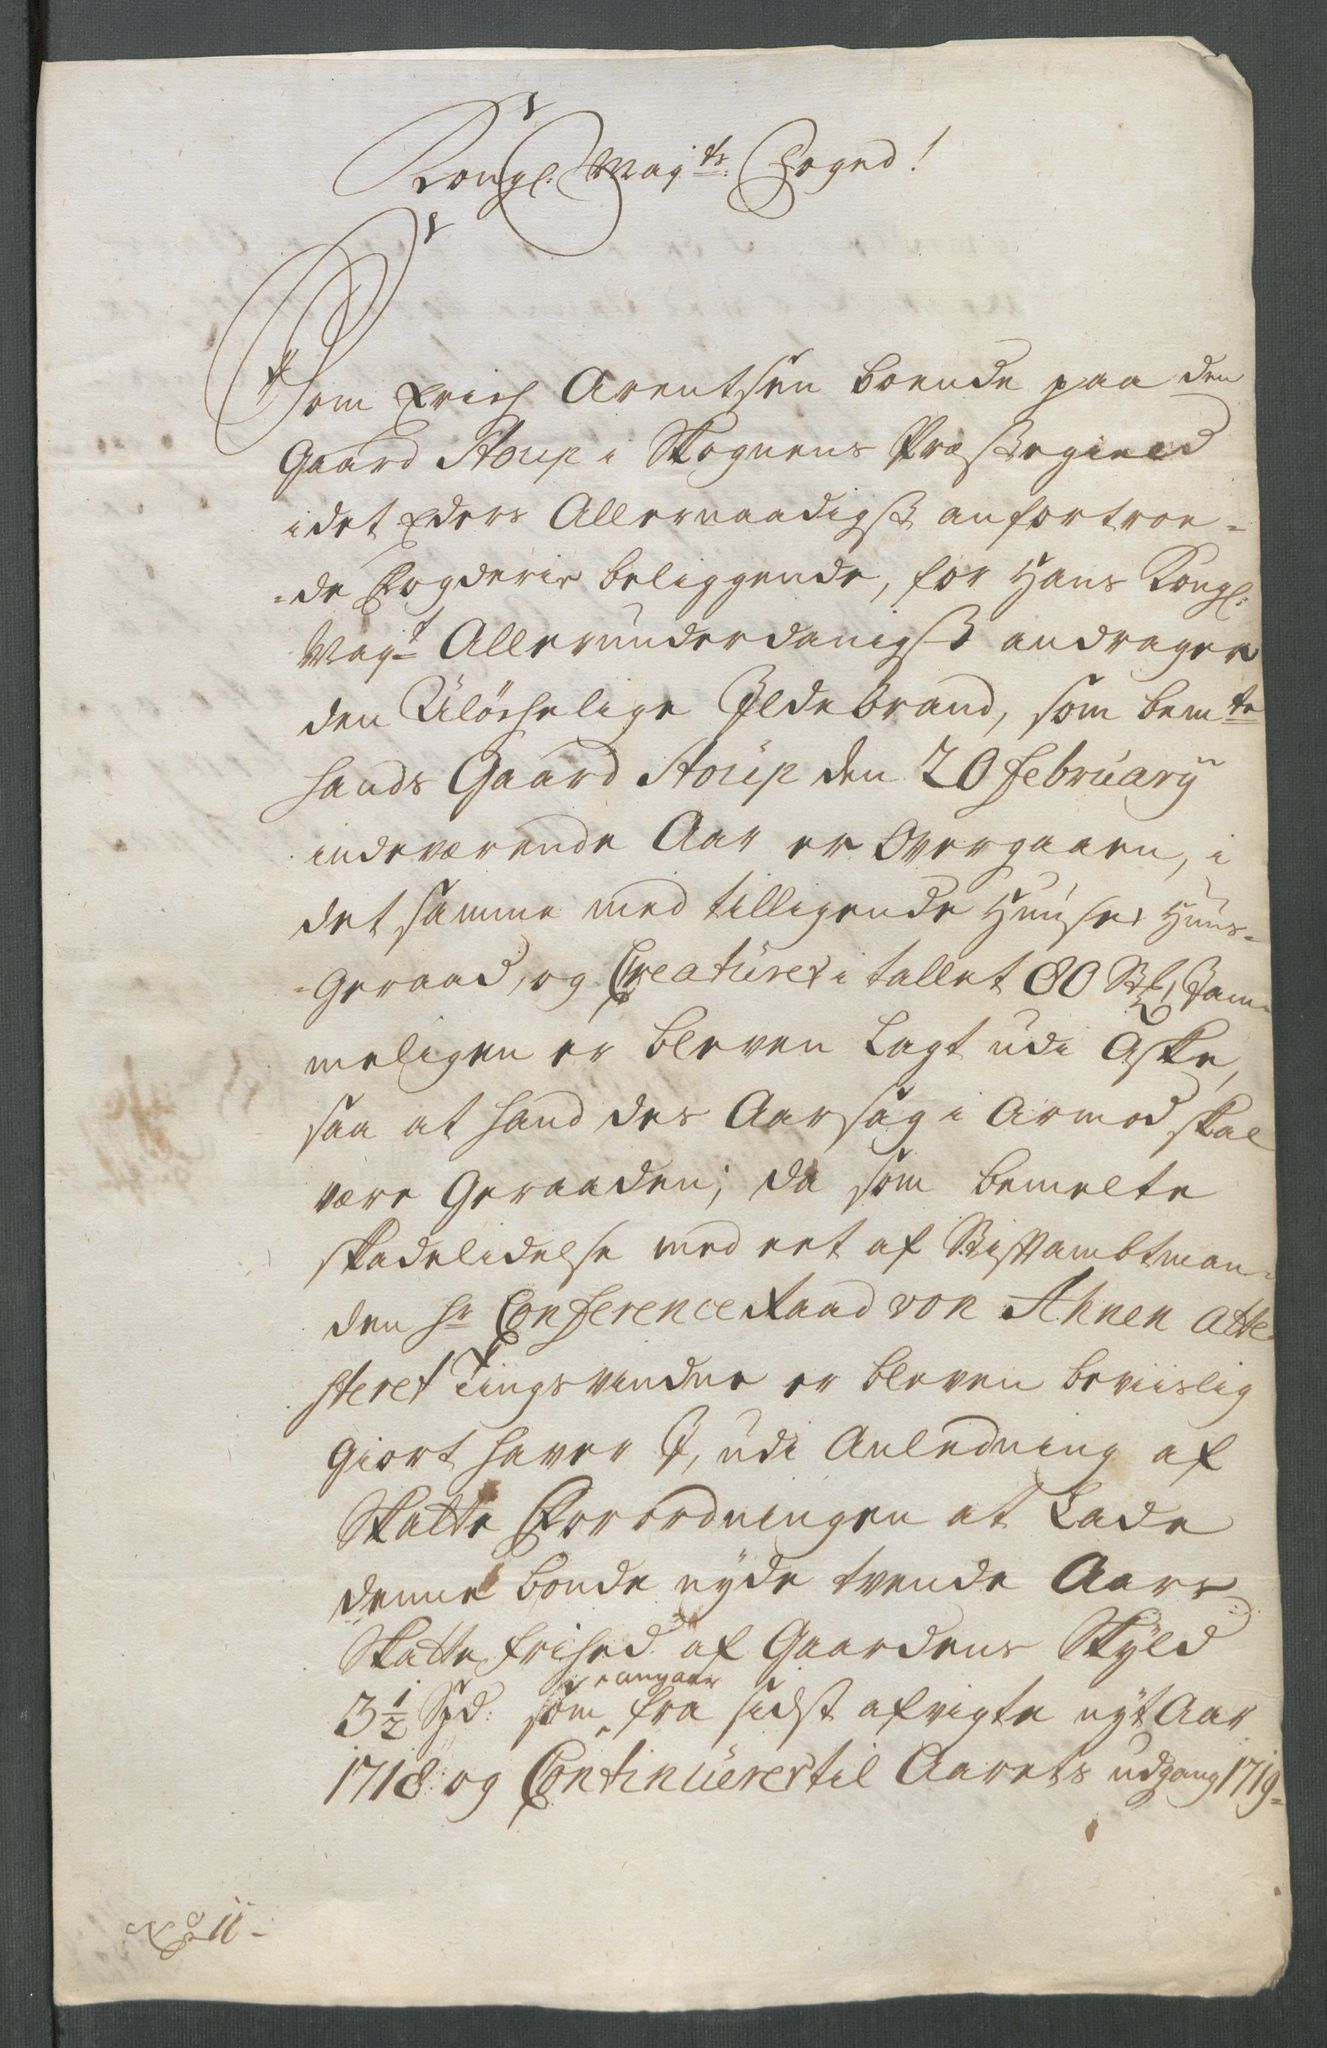 Kongl: Maj:ts Foged!
Som Erich Arentsen boende paa den
Gaard Stoup i Skognens Præstegield
i det Eders Allernaadigst anfortroe-
-de Fogderie beliggende, for Hans Kongl:
Maj:t Allerunderdanigst andrager
den Ulöchelige Ildebrand, som bem:te
hands Gaard Stoup den 20 february
indeværende Aar er overgaaen, i
det samme med tilligende Huuse, Huus-
-Geraad, og Creaturer i tallet 80 St:, Jam-
meligen er bleven Lagt udi Aske,
saa at hand des Aarsag i Armod skal
være Geraaden; da som bemelte
skadelidelse med eet af Stiftambtman-
den Hr Conference Raad von Ahnen atte-
steret Tingsvidne er bleven beviislig
giort haver I, udi Anledning af
Skatte Forordningen at Lade
denne bonde nyde tvende Aars
Skatte frihed af Gaardens Skyld
3½ Spd: som angaar fra sidst afvigte nyt Aar
1718 og Continuerer til Aarets udgang 1719-
No 11-